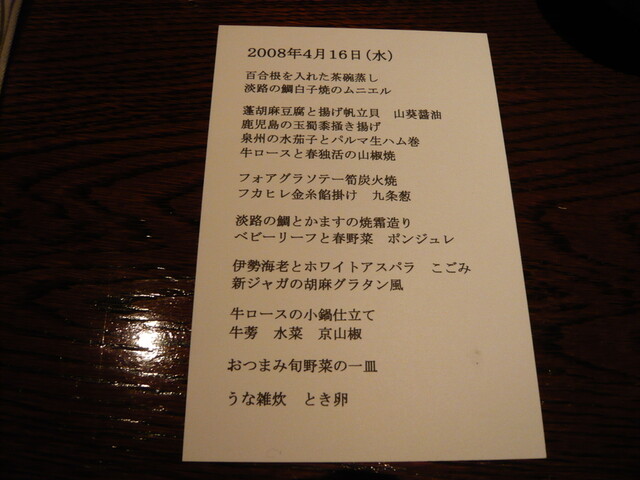 2008年4月16日(水)
百合根を入れた茶碗蒸し
淡路の鯛白子焼のムニエル
蓬胡麻豆腐と揚げ帆立貝　山葵醤油
鹿児島の玉蜀黍掻き揚げ
泉州の水茄子とパルマ生ハム巻
牛ロースと春独活の山椒焼
フォアグラソテー筍炭火焼
フカヒレ金糸餡掛け　九条葱
淡路の鯛とかますの焼霜造り
ベビーリーフと春野菜　ポンジュレ
伊勢海老とホワイトアスパラ　こごみ
新ジャガの胡麻グラタン風
牛ロースの小鍋仕立て
牛蒡　水菜　京山椒
おつまみ旬野菜の一皿
うな雑炊　とき卵